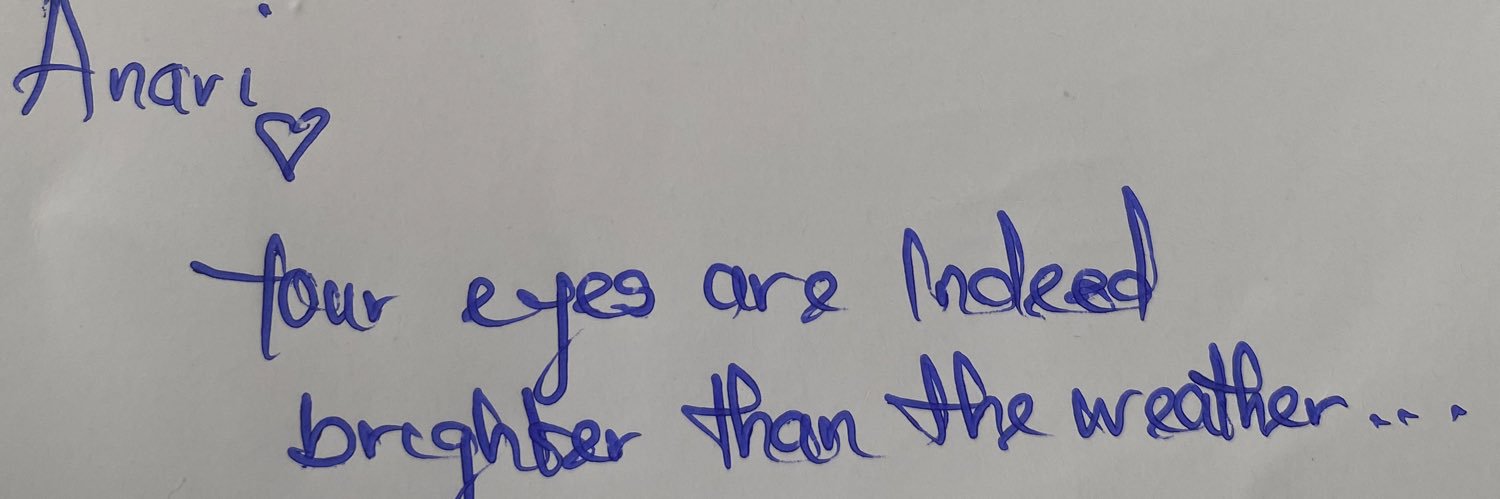 Anari
♡
Your eyes are Indeed
brighter than the weather...